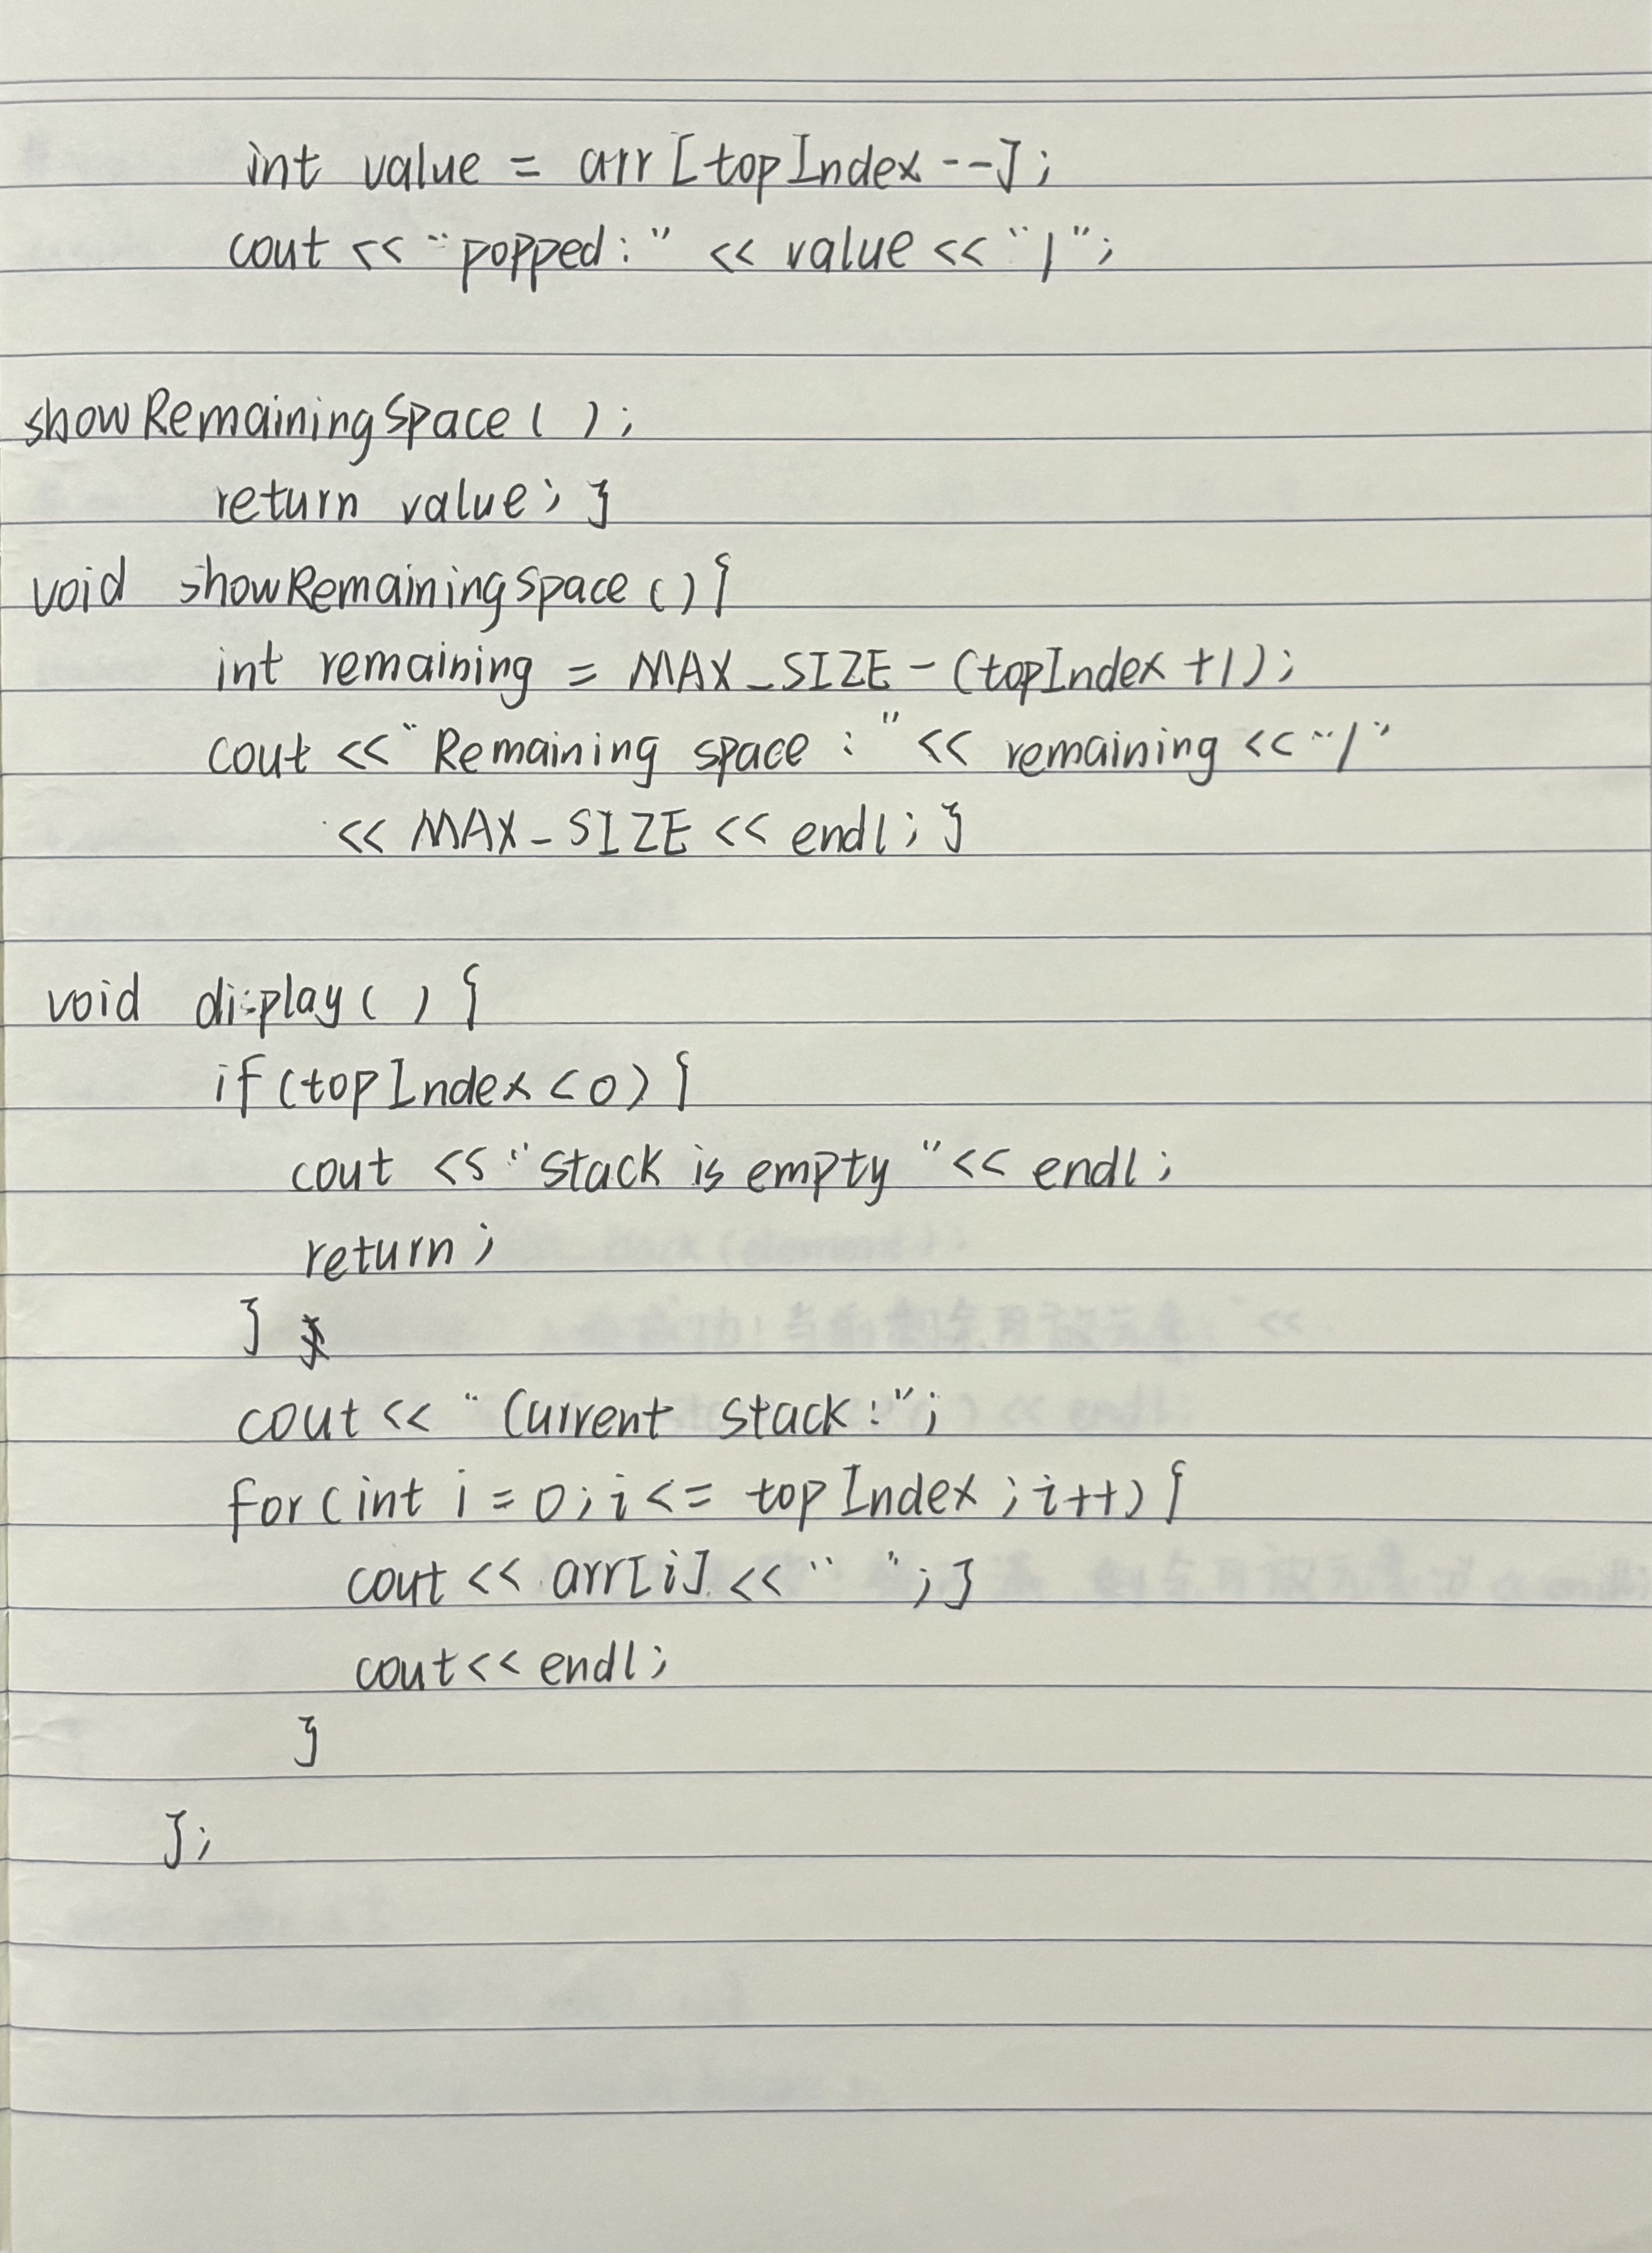 int value = arr[topIndex--];
cout << "popped:" << value << "|";
showRemainingSpace( );
return value; }
void showRemainingSpace(){
int remaining = MAX_SIZE-(topIndex+1);
cout << "Remaining space : " << remaining << "/"
<< MAX_SIZE << endl; }
void display( ) {
if(topIndex<0) {
cout << "stack is empty "<< endl;
return;
}
cout << "Current stack:";
for(int i=0;i<= topIndex;i++){
cout << arr[i] << " ";}
cout<< endl;
}
};